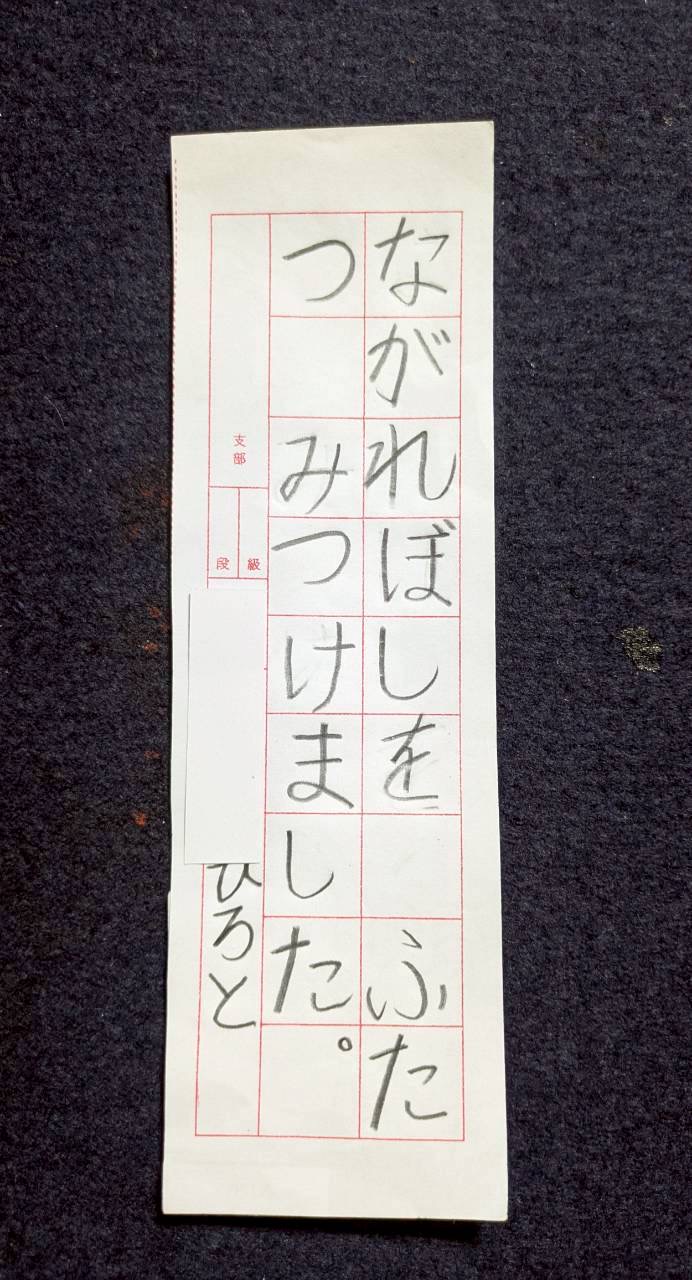 ながれぼしを　ふた
つ　みつけました。
支部
級
段
ひろと